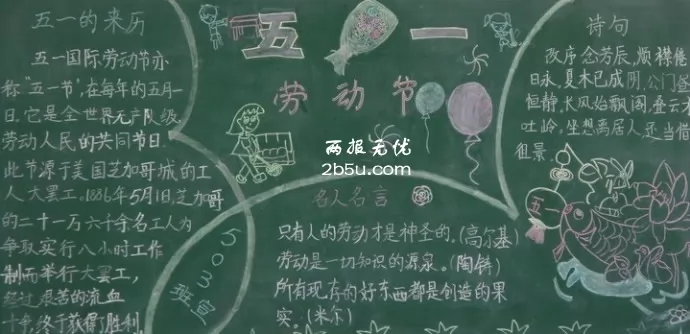 五一的来历
五一国际劳动节亦
称"五一节",在每年的五月
日。它是全世界无产阶级、
劳动人民的共同节日。
此节源于美国芝加哥城的工
人大罢工。1886年5月1日,芝加哥
的二十一万六千余名工人为
争取实行八小时工作
制而举行大罢工,
经过艰苦的流血
终于获得胜利
五一
劳动节
两报无优
2b5u.com
名人名言
只有人的劳动才是神圣的。(高尔基)
劳动是一切知识的源泉。(陶铸)
所有现存的好东西都是创造的果
实。(米尔)
503
班宣
诗句
改序念芳辰,烦襟倦
日永。夏木已成阴,公门昼
恒静。长风始飘阁,叠云才
吐岭。坐想离居人,还当惜
徂景。
五一